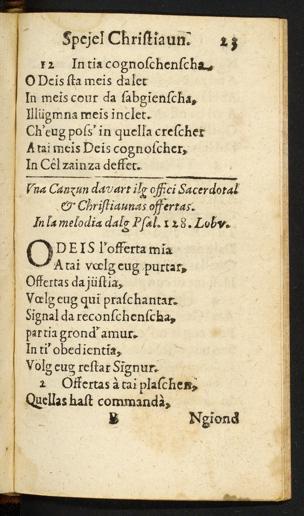 Spejel Christiaun. 23
12 In tia cognoschenscha,
O Deis sta meis dalet
In meis cour da sabgienscha,
Illügmna meis inclet.
Ch'eug poss' in quella crescher
A tai meis Deis cognoscher,
In Cêl zainza deffet.
Vna Canzun davart ilg offici Sacerdotal
& Christiaunas offertas.
In la melodia dalg Psal. 128. Lobv.
O DEIS l'offerta mia
A tai vœlg eug purtar,
Offertas da jüstia,
Vœlg eug qui praschantar.
Signal da reconschenscha,
par tia grond' amur.
In ti' obedientia,
Volg eug restar Signur.
2 Offertas à tai plaschen,
Quellas hast commandà,
B Ngiond